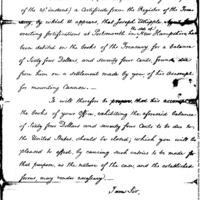 (of the 16th instant) a Certificate from the Register of the Trea-
sury, by which it appears, that Joseph Whipple
erecting fortifications at Portsmouth in New Hampshire, has
been debited on the books of the Treasury for a balance
of Sixty four Dollars, and seventy four Cents, found due
from him on a settlement made by you of his account
for mounting Cannon.
It will therefore be proper, that his account
the books of your Office, exhibiting the aforesaid balance
of Sixty four Dollars and seventy four Cents to be due to
the United States, should be closed; which you will be
pleased to effect, by causing such entries to be made for
that purpose, as the nature of the case, and the established
forms, may render necessary.
I am Sir,